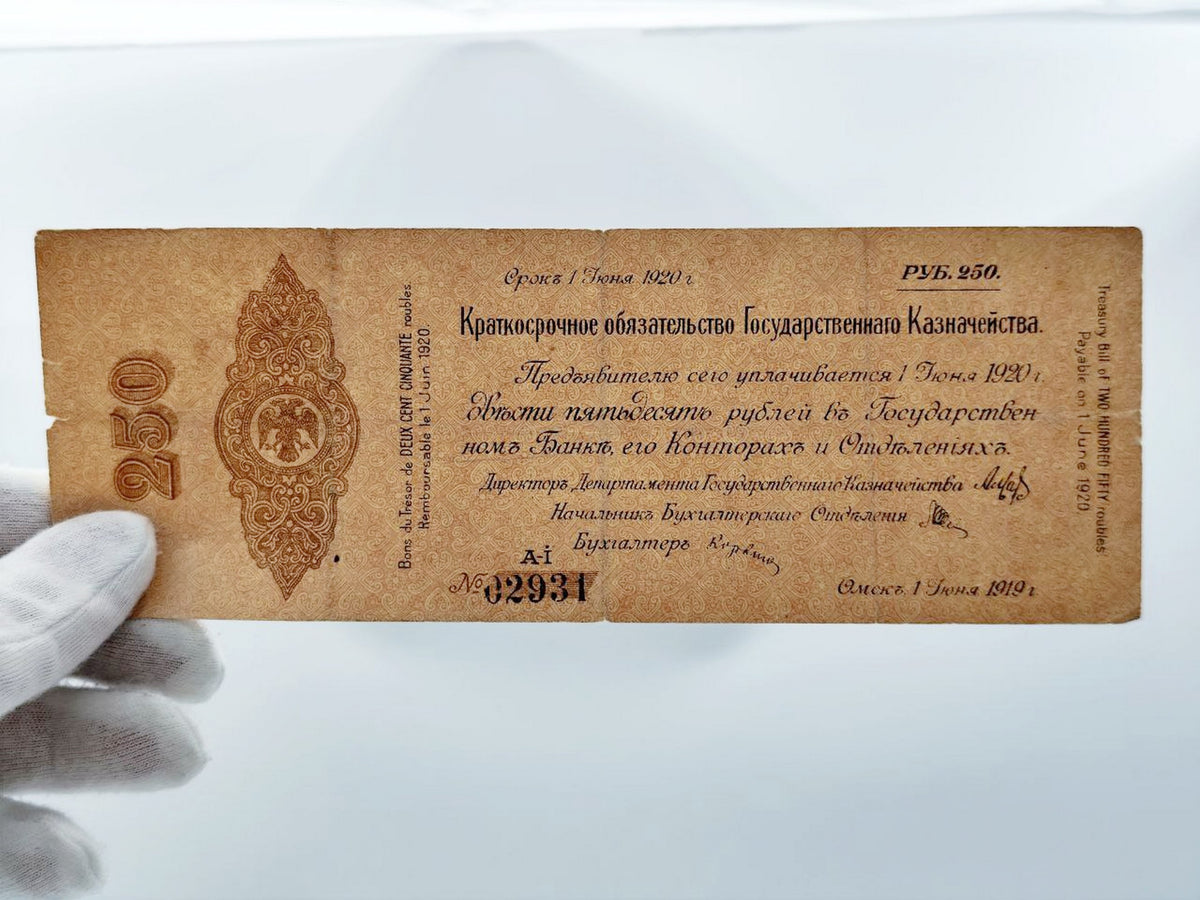 250
Bons du Tresor de DEUX CENT CINQUANTE roubles.
Remboursable le 1 Juin 1920.
Срокъ 1 Июня 1920 г.
РУБ. 250.
Краткосрочное обязательство Государственнаго Казначейства.
Предъявителю сего уплачивается 1 Июня 1920 г.
Двѣсти пятьдесятъ рублей въ Государствен-
номъ Банкѣ, его Конторахъ и Отдѣленіяхъ.
Директоръ Департамента Государственнаго Казначейства
Начальникъ Бухгалтерскаго Отдѣленія
Бухгалтеръ
А-І
№ 02931
Омскъ, 1 Июня 1919 г.
Treasury Bill of TWO HUNDRED FIFTY roubles
Payable on 1 June 1920